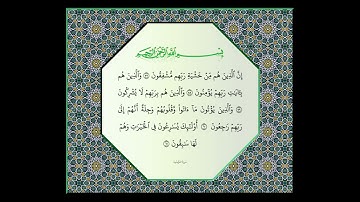 بسم الله الرحمن الرحيم
إِنَّ الَّذِينَ هُم مِّنْ خَشْيَةِ رَبِّهِم مُّشْفِقُونَ ۝ وَالَّذِينَ هُم
بِآيَاتِ رَبِّهِمْ يُؤْمِنُونَ ۝ وَالَّذِينَ هُم بِرَبِّهِمْ لَا يُشْرِكُونَ
۝ وَالَّذِينَ يُؤْتُونَ مَا ءَاتَوا وَّقُلُوبُهُمْ وَجِلَةٌ أَنَّهُمْ إِلَىٰ
رَبِّهِمْ رَاجِعُونَ ۝ أُولَٰئِكَ يُسَارِعُونَ فِي الْخَيْرَاتِ وَهُمْ
لَهَا سَابِقُونَ ۝